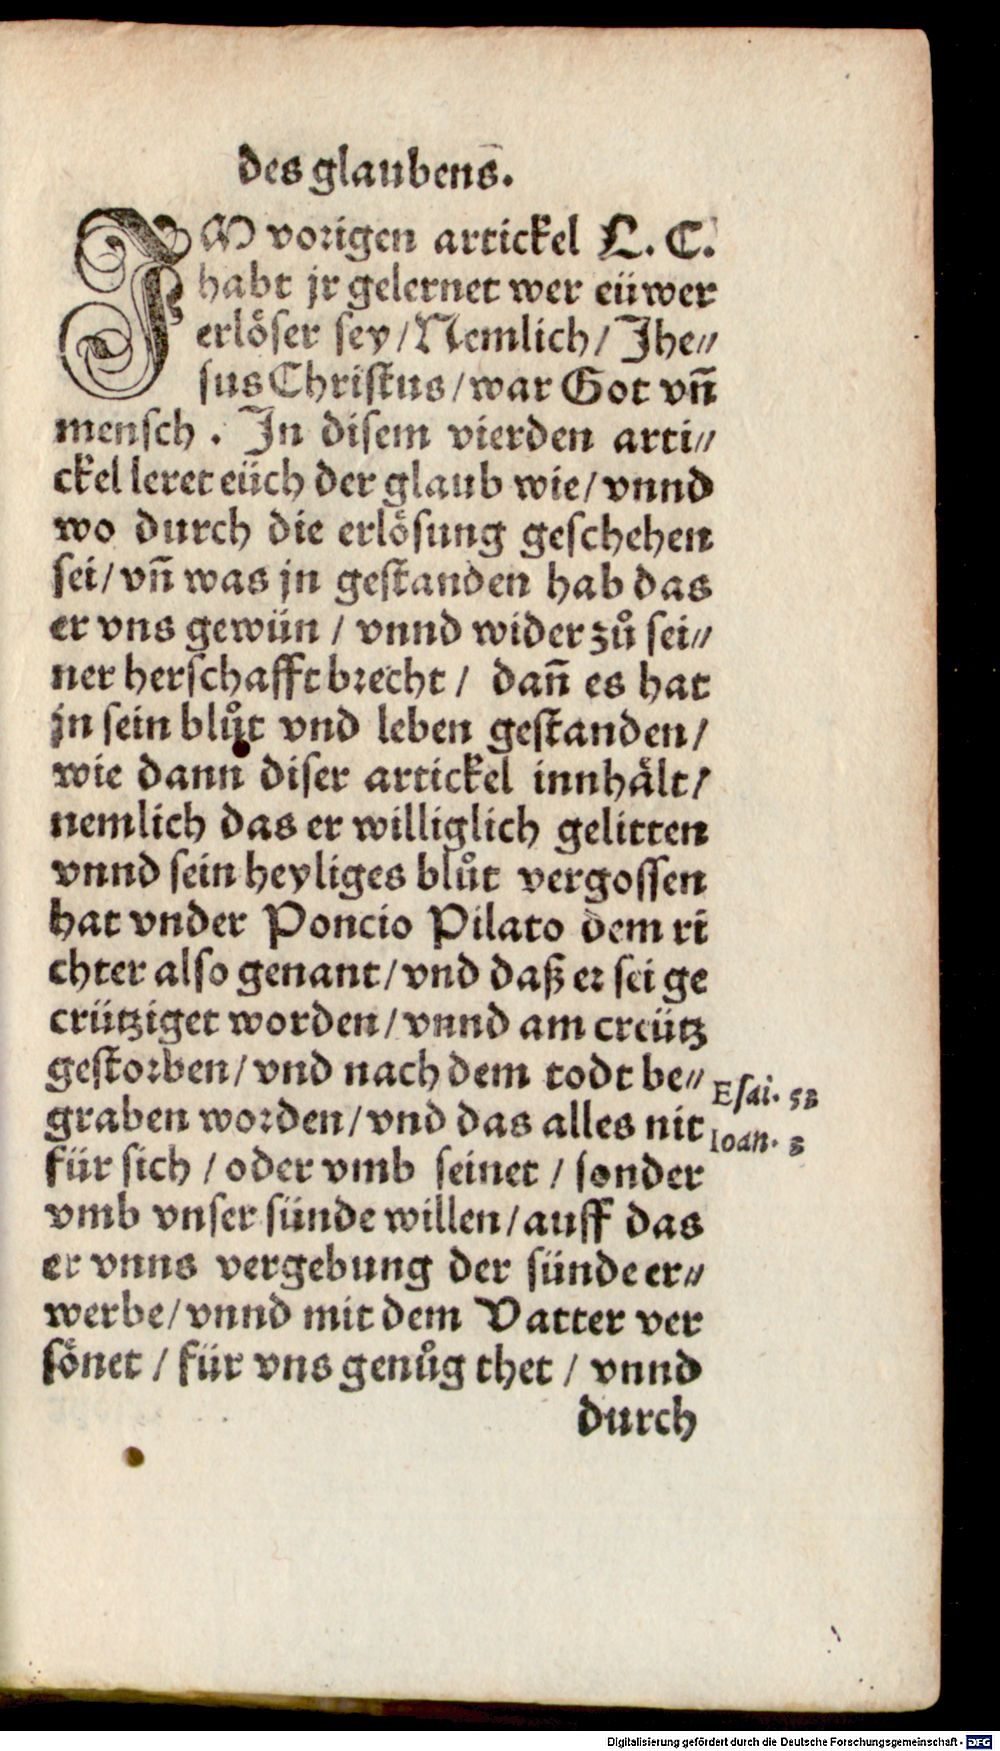 des glaubens.
IM vorigen artickel L. C.
habt jr gelernet wer eüwer
erlöser sey / Nemlich / Jhe⸗
sus Christus / war Got vñ
mensch . In disem vierden arti⸗
ckel leret eüch der glaub wie / vnnd
wo durch die erlösung geschehen
sei / vñ was jn gestanden hab das
er vns gewün / vnnd wider zů sei⸗
ner herschafft brecht / dañ es hat
jn sein blůt vnd leben gestanden /
wie dann diser artickel innhält /
nemlich das er williglich gelitten
vnnd sein heyliges blůt vergossen
hat vnder Poncio Pilato dem ri
chter also genant / vnd daß er sei ge
crütziget worden / vnnd am creütz
gestorben / vnd nach dem todt be⸗
Esai. 53
graben worden / vnd das alles nit
Ioan. 3
für sich / oder vmb seinet / sonder
vmb vnser sünde willen / auff das
er vnns vergebung der sünde er⸗
werbe / vnnd mit dem Vatter ver
sönet / für vns genůg thet / vnnd
durch
Digitalisierung gefördert durch die Deutsche Forschungsgemeinschaft - DFG